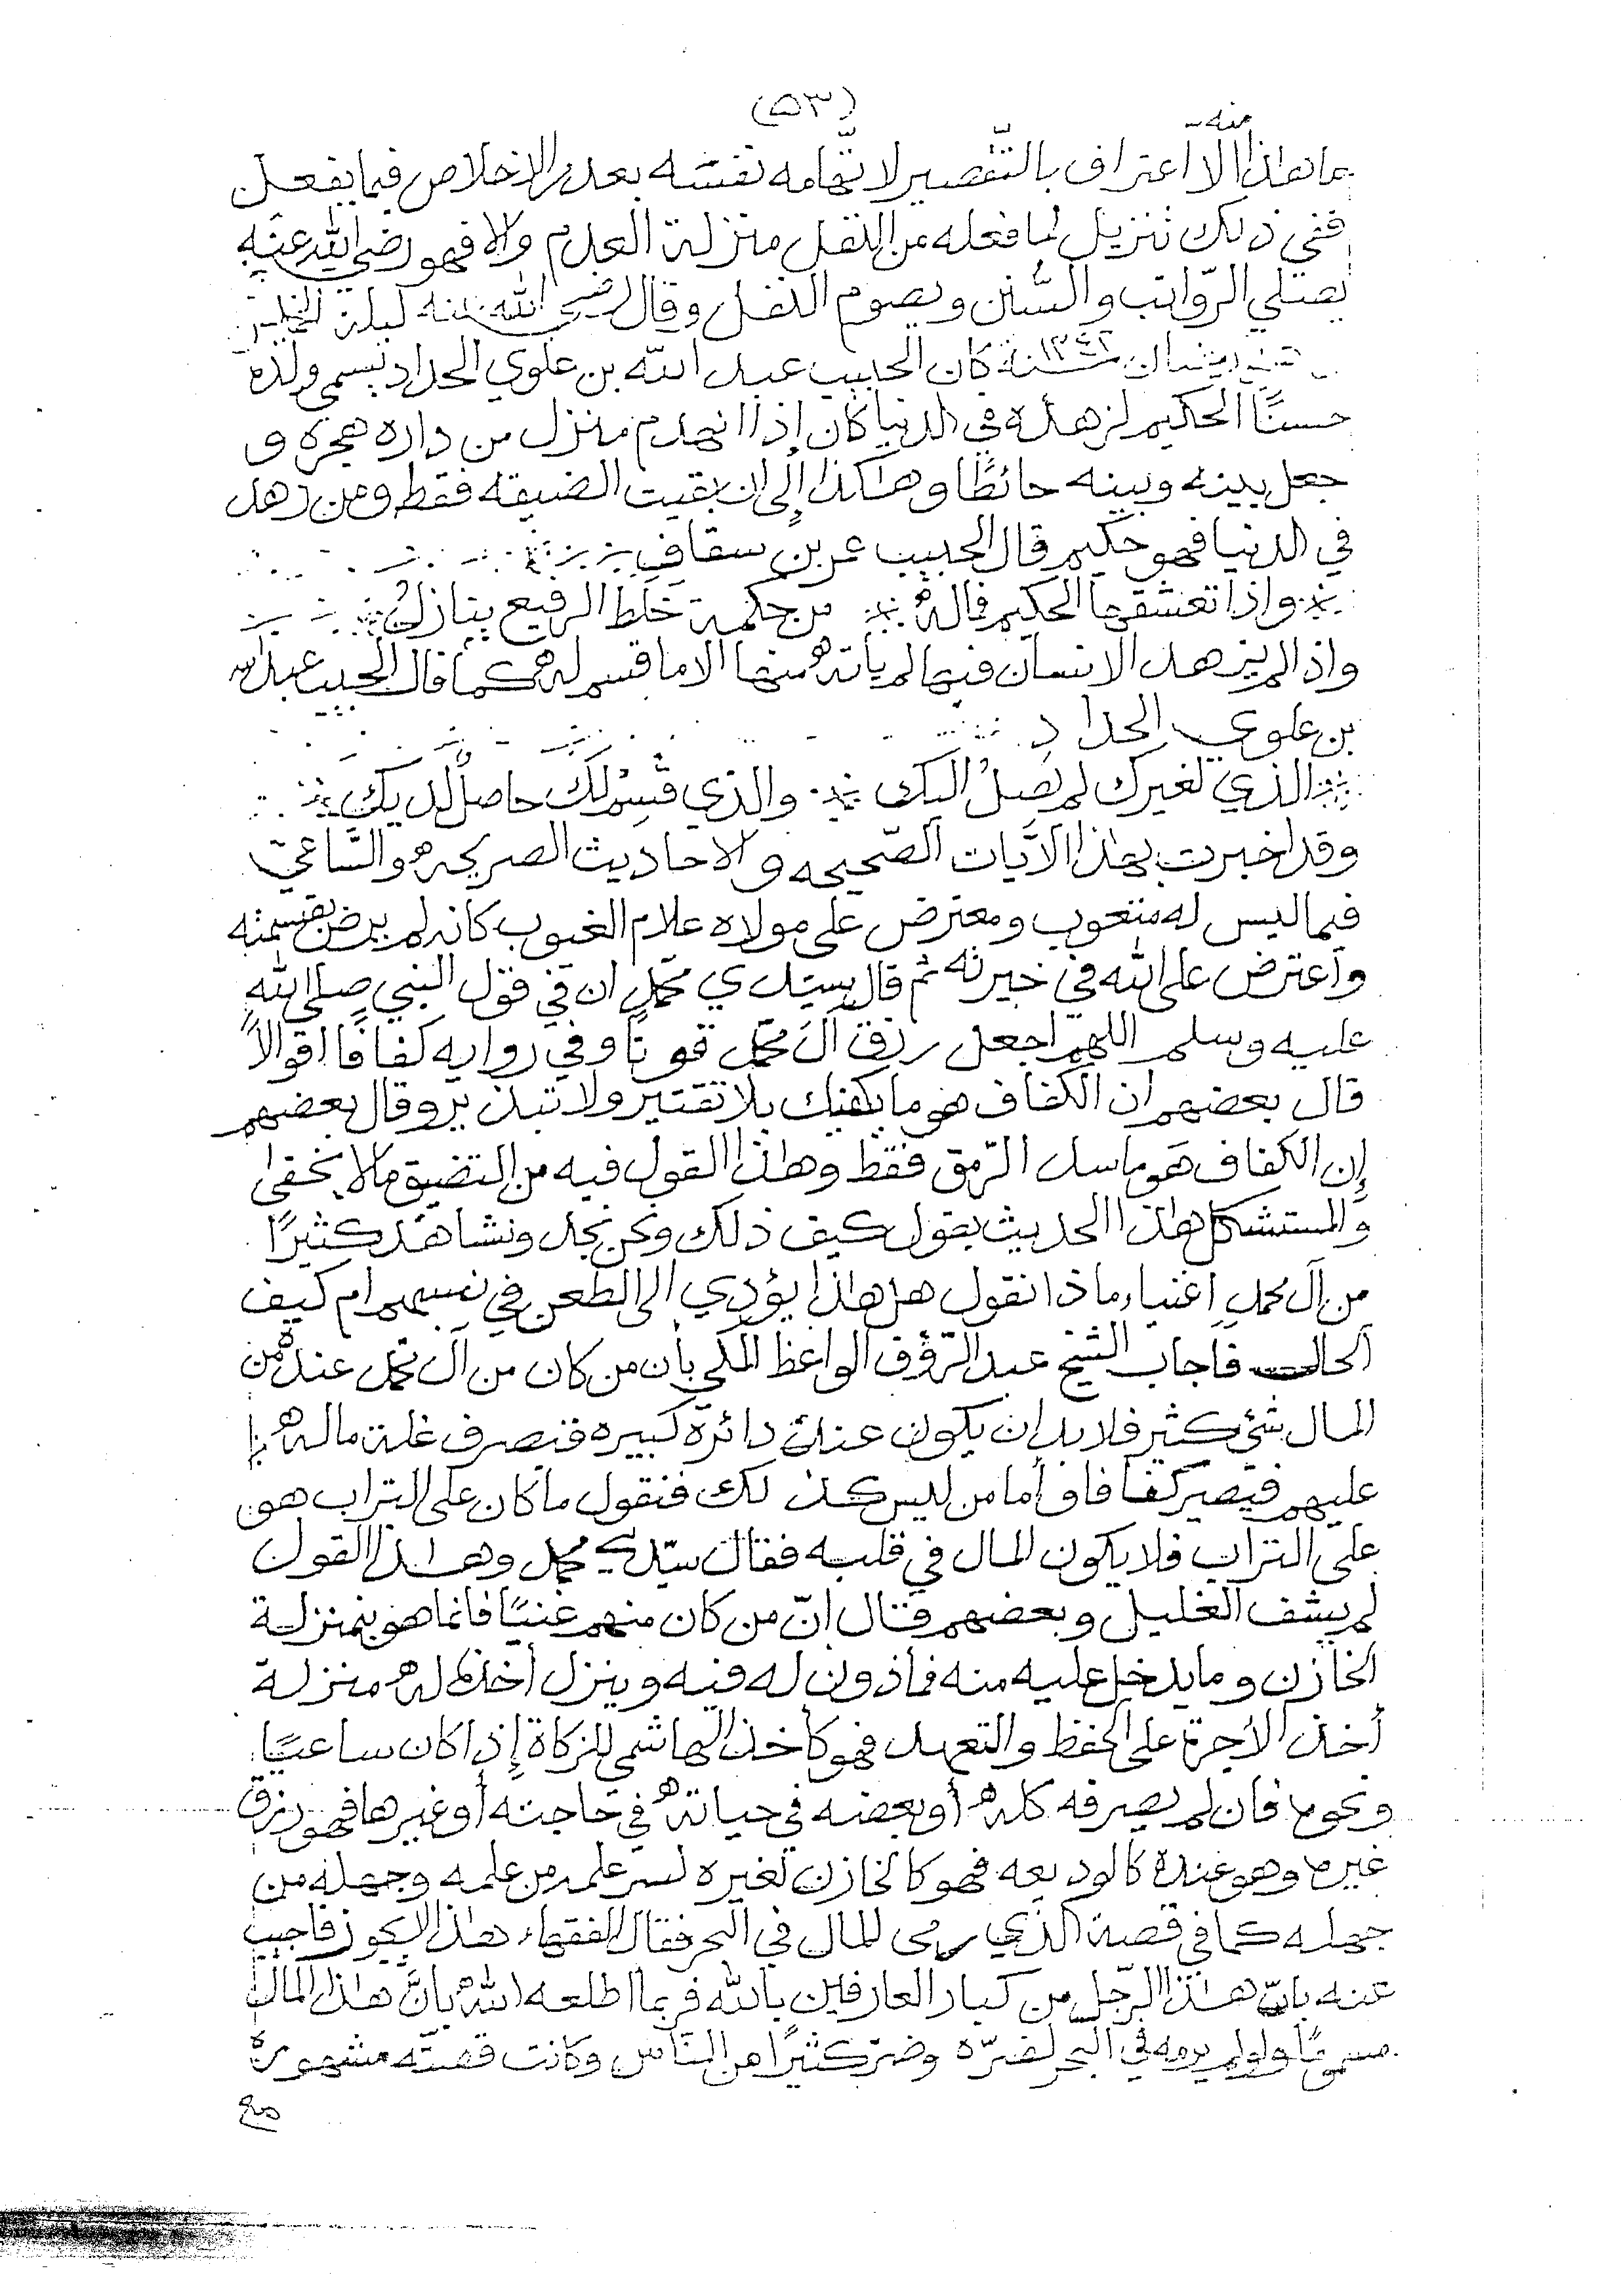 (٥٣)
منه
ما هذا الا اعتراف بالتَّقصير لاتّهامه نفسه بعدم الإخلاص فيما يفعل
ففي ذلك تنزيل لما فعله من النفل منزلة العدم والا فهو رضي الله عنه
يصلي الرّواتب والسُّنن ويصوم النفل وقال رضي الله عنه ليلة
سنة ١٣٤٢ كان الحبيب عبد الله بن علوي الحداد يسمى ولده
حسنًا الحكيم لزهده في الدنيا كان إذا انهدم منزل من داره هجره و
جعل بينه وبينه حائطًا وهاكذا إلى ان بقيت الضيقه فقط ومن زهد
في الدنيا فهو حكيم قال الحبيب عمر بن سقاف
واذا تعشقها الحكيم فماله من حكمة خلط الرفيع بنازل
واذا لم يزهد الانسان فيها لم ياته منها الا ما قسم له كما قال الحبيب عبد الله
بن علوي الحداد
الذي لغيرك لم يصلُ اليك والذي قُسِمْ لَكْ حاصلٌ لديك
وقد اخبرت بهذا الآيات الصّحيحه والاحاديث الصريحه والسَّاعي
فيما ليس له متعوب ومعترض على مولاه علام الغيوب كانه لم يرض بقسمته
واعترض على الله في خيرته ثم قال سيّدي محمد ان في قول النبي صلى الله
عليه وسلم اللهم اجعل رزق آل محمد قوتًا وفي روايه كفافًا اقوالًا
قال بعضهم ان الكفاف هو ما يكفيك بلا تقتير ولا تبذير وقال بعضهم
إن الكفاف هو ما سد الرّمق فقط وهاذا القول فيه من التضيق مالا يخفى
والمستشكل هاذا الحديث يقول كيف ذلك ونحن نجد ونشاهد كثيرًا
من آل محمد اغنياء ماذا نقول هل هاذا يؤدي الى الطعن في نسبهم ام كيف
الحال فأجاب الشيخ عبد الرّؤف الواعظ المكي بأن من كان من آل محمد عنده من
المال شئ كثير فلا بد ان يكون عنده دائرة كبيره فتصرف غلة ماله
عليهم فيصير كفافا وأما من ليس كذلك فنقول ما كان على التراب هو
على التراب فلا يكون المال في قلبه فقال سيّدي محمد وهاذا القول
لم يشف الغليل وبعضهم قال انّ من كان منهم غنيًا فانما هو بمنزلة
الخازن وما يدخل عليه منه فماذون له فيه وينزل أخذه له منزلة
أخذ الأجرة على الحفظ والتعهد فهو كأخذ الهاشمي للزكاة إذا كان ساعيًا
ونحوه فان لم يصرفه كله أو بعضه في حياته في حاجته أو غيرها فهو رزق
غيره وهو عنده كالوديعه فهو كالخازن لغيره لسر علمه من علمه وجهله من
جهله كما في قصة الذي رمى المال في البحر فقال الفقهاء هاذا لا يجوز فاجيب
عنه بانّ هاذا الرّجل من كبار العارفين بالله فربما اطلعه اللهُ بانَّ هاذا المال
مسمومًا ولو لم يرمه في البحر لضرّه وضرّ كثيرًا من النّاس وكانت قصّته مشهورة